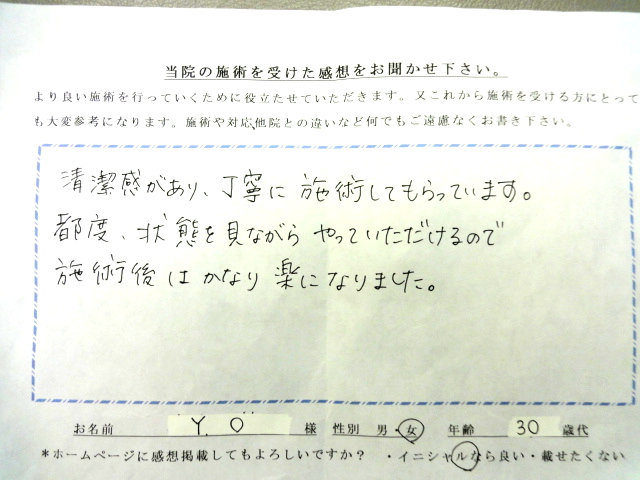 当院の施術を受けた感想をお聞かせ下さい。
より良い施術を行っていくために役立たせていただきます。又これから施術を受ける方にとって
も大変参考になります。施術や対応、他院との違いなど何でもご遠慮なくお書き下さい。
清潔感があり、丁寧に施術してもらっています。
都度、状態を見ながらやっていただけるので
施術後はかなり楽になりました。
お名前 Y. O 様 性別 男・女 年齢 30 歳代
*ホームページに感想掲載してもよろしいですか？ ・イニシャルなら良い・載せたくない